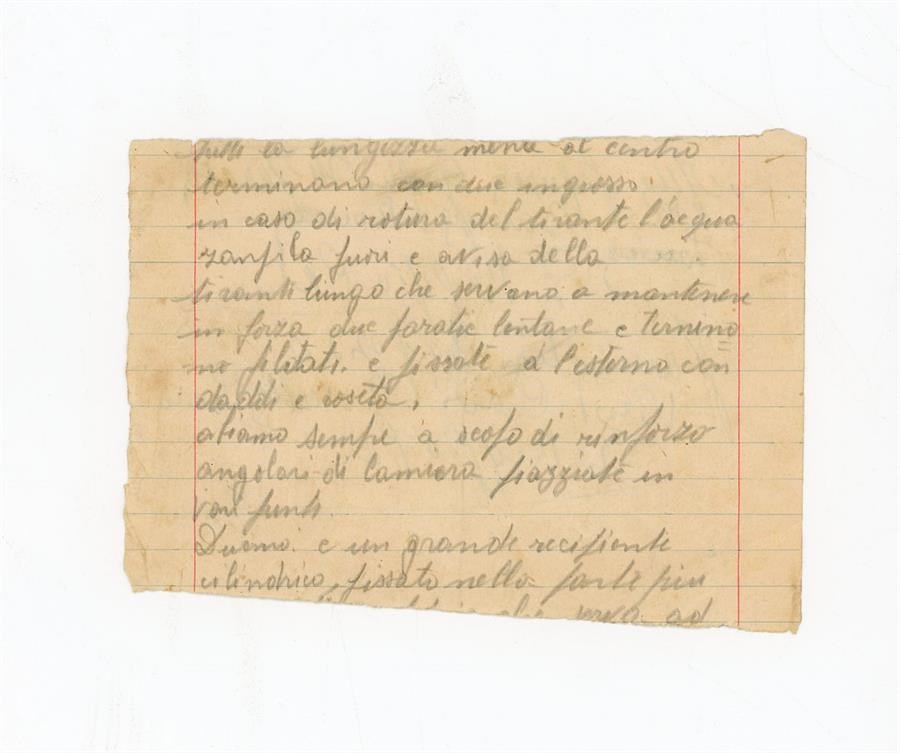 tutti la lungezza mena al centro
terminano con due ingrosso.
in caso di rotura del tirante l'acqua
zanfila fuori e avisa della
tiranti lungo che servano a mantenere
in forza due paratie lontane e Termino
no filetati. e fissate a l'esterno con
daddi e roseta,
abiamo sempe a scopo di rinforzo
angolari di lamiera piazziate in
vari punti.
Duomo. e un grande recipiente
cilindrico, fissato nella parte piu
che serva ad